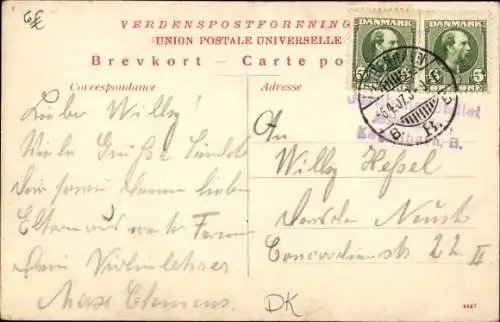 VERDENSPOSTFORENING
UNION POSTALE UNIVERSELLE
Brevkort — Carte po
Correspondance
Adresse
DANMARK DANMARK
5 5
ØRE
Lieber Willy!
Viele Grüße sendet
Dir sowie Deinen lieben
Eltern aus weiter Ferne
Dein Violinlehrer
Max Clemens.
An
Willy Hessel
Dresden Neust.
Concordienstr 22 II
DK